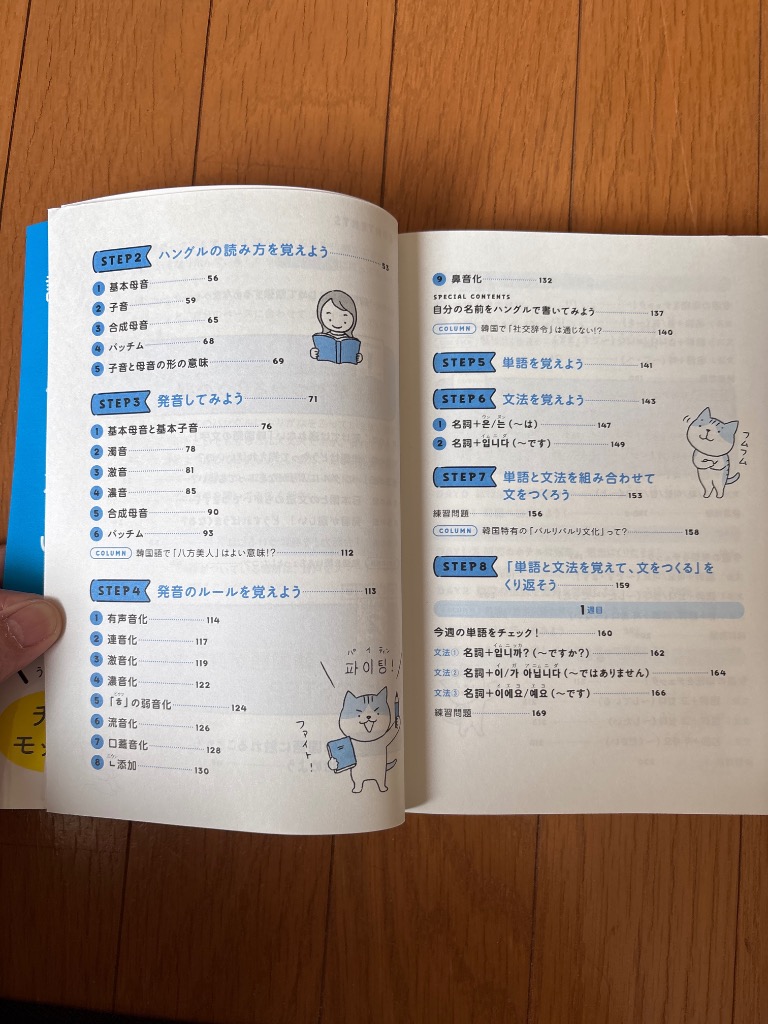 STEP2 ハングルの読み方を覚えよう 53
1 基本母音 56
2 子音 59
3 合成母音 65
4 パッチム 68
5 子音と母音の形の意味 69
STEP3 発音してみよう 71
1 基本母音と基本子音 76
2 濁音 78
3 激音 81
4 濃音 85
5 合成母音 90
6 パッチム 93
COLUMN 韓国語で「八方美人」はよい意味!? 112
STEP4 発音のルールを覚えよう 113
1 有声音化 114
2 連音化 117
3 激音化 119
4 濃音化 122
5 「ㅎ」の弱音化 124
6 流音化 126
7 口蓋音化 128
8 ㄴ添加 130
パイティン
파이팅!
ファイト!
9 鼻音化 132
SPECIAL CONTENTS
自分の名前をハングルで書いてみよう 137
COLUMN 韓国で「社交辞令」は通じない!? 140
STEP5 単語を覚えよう 141
STEP6 文法を覚えよう 143
ウン ヌン
1 名詞+은/는(~は) 147
イムニダ
2 名詞+입니다(~です) 149
フムフム
STEP7 単語と文法を組み合わせて
文をつくろう 153
練習問題 156
COLUMN 韓国特有の「パルリパルリ文化」って? 158
STEP8 「単語と文法を覚えて、文をつくる」を
くり返そう 159
1週目
今週の単語をチェック! 160
イムニッカ
文法① 名詞+입니까?(~ですか?) 162
イ ガ アニムニダ
文法② 名詞+이/가 아닙니다(~ではありません) 164
イエヨ エヨ
文法③ 名詞+이에요/예요(~です) 166
練習問題 169